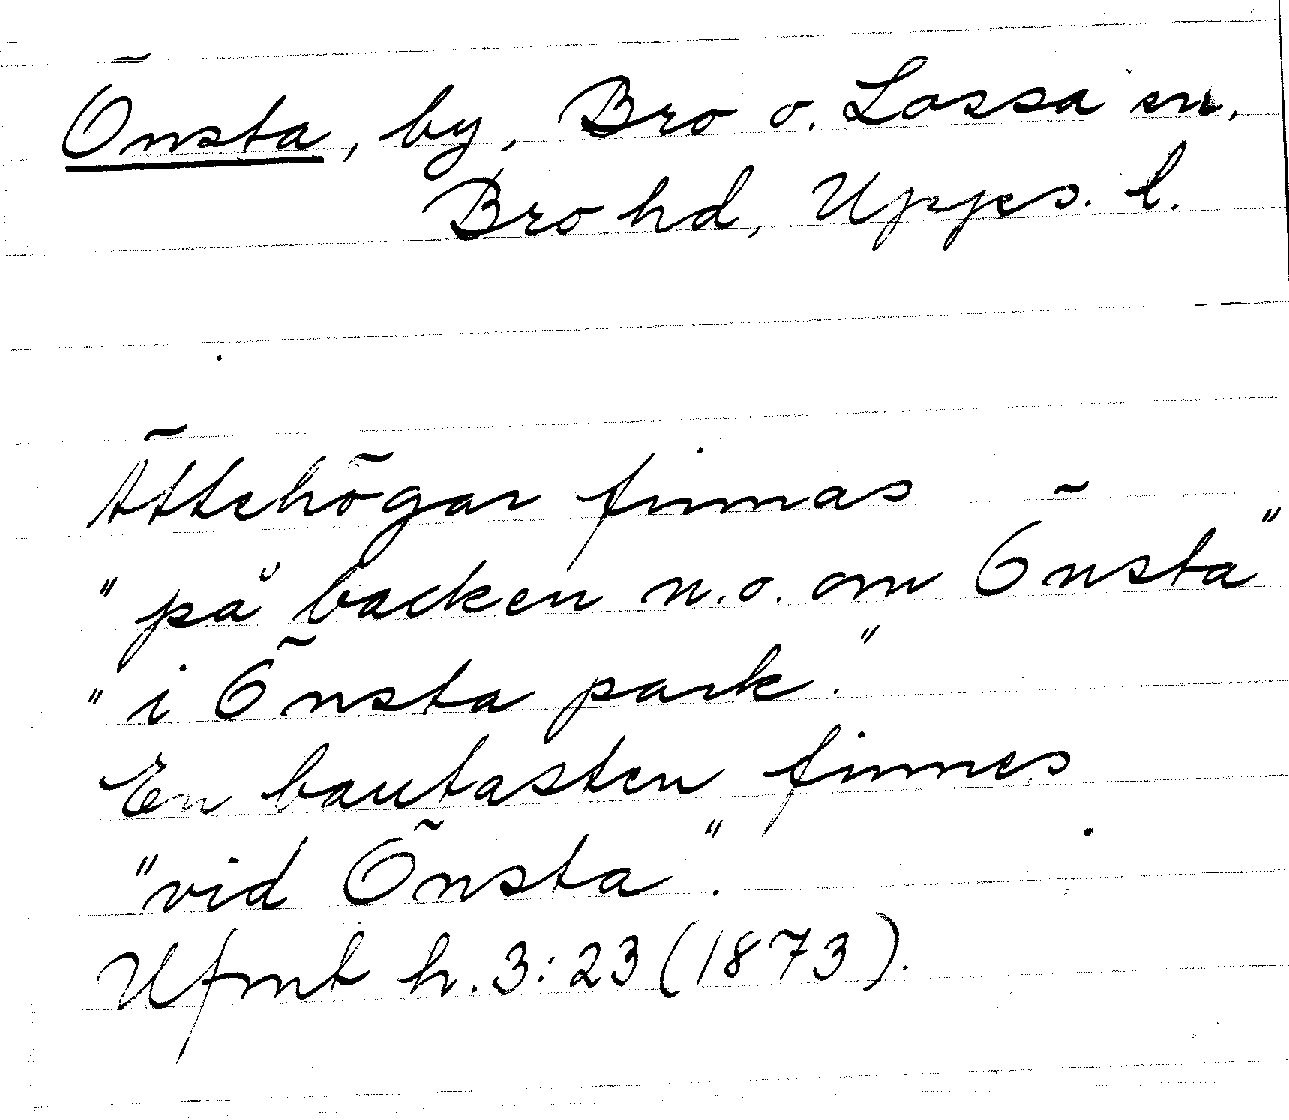 Önsta, by, Bro o. Lossa sn,
Bro hd, Upps. l.
Ättehögar finnas
"på backen n.o. om Önsta"
"i Önsta park."
En bautasten finnes
"vid Önsta".
Ufmt h. 3:23 (1873).